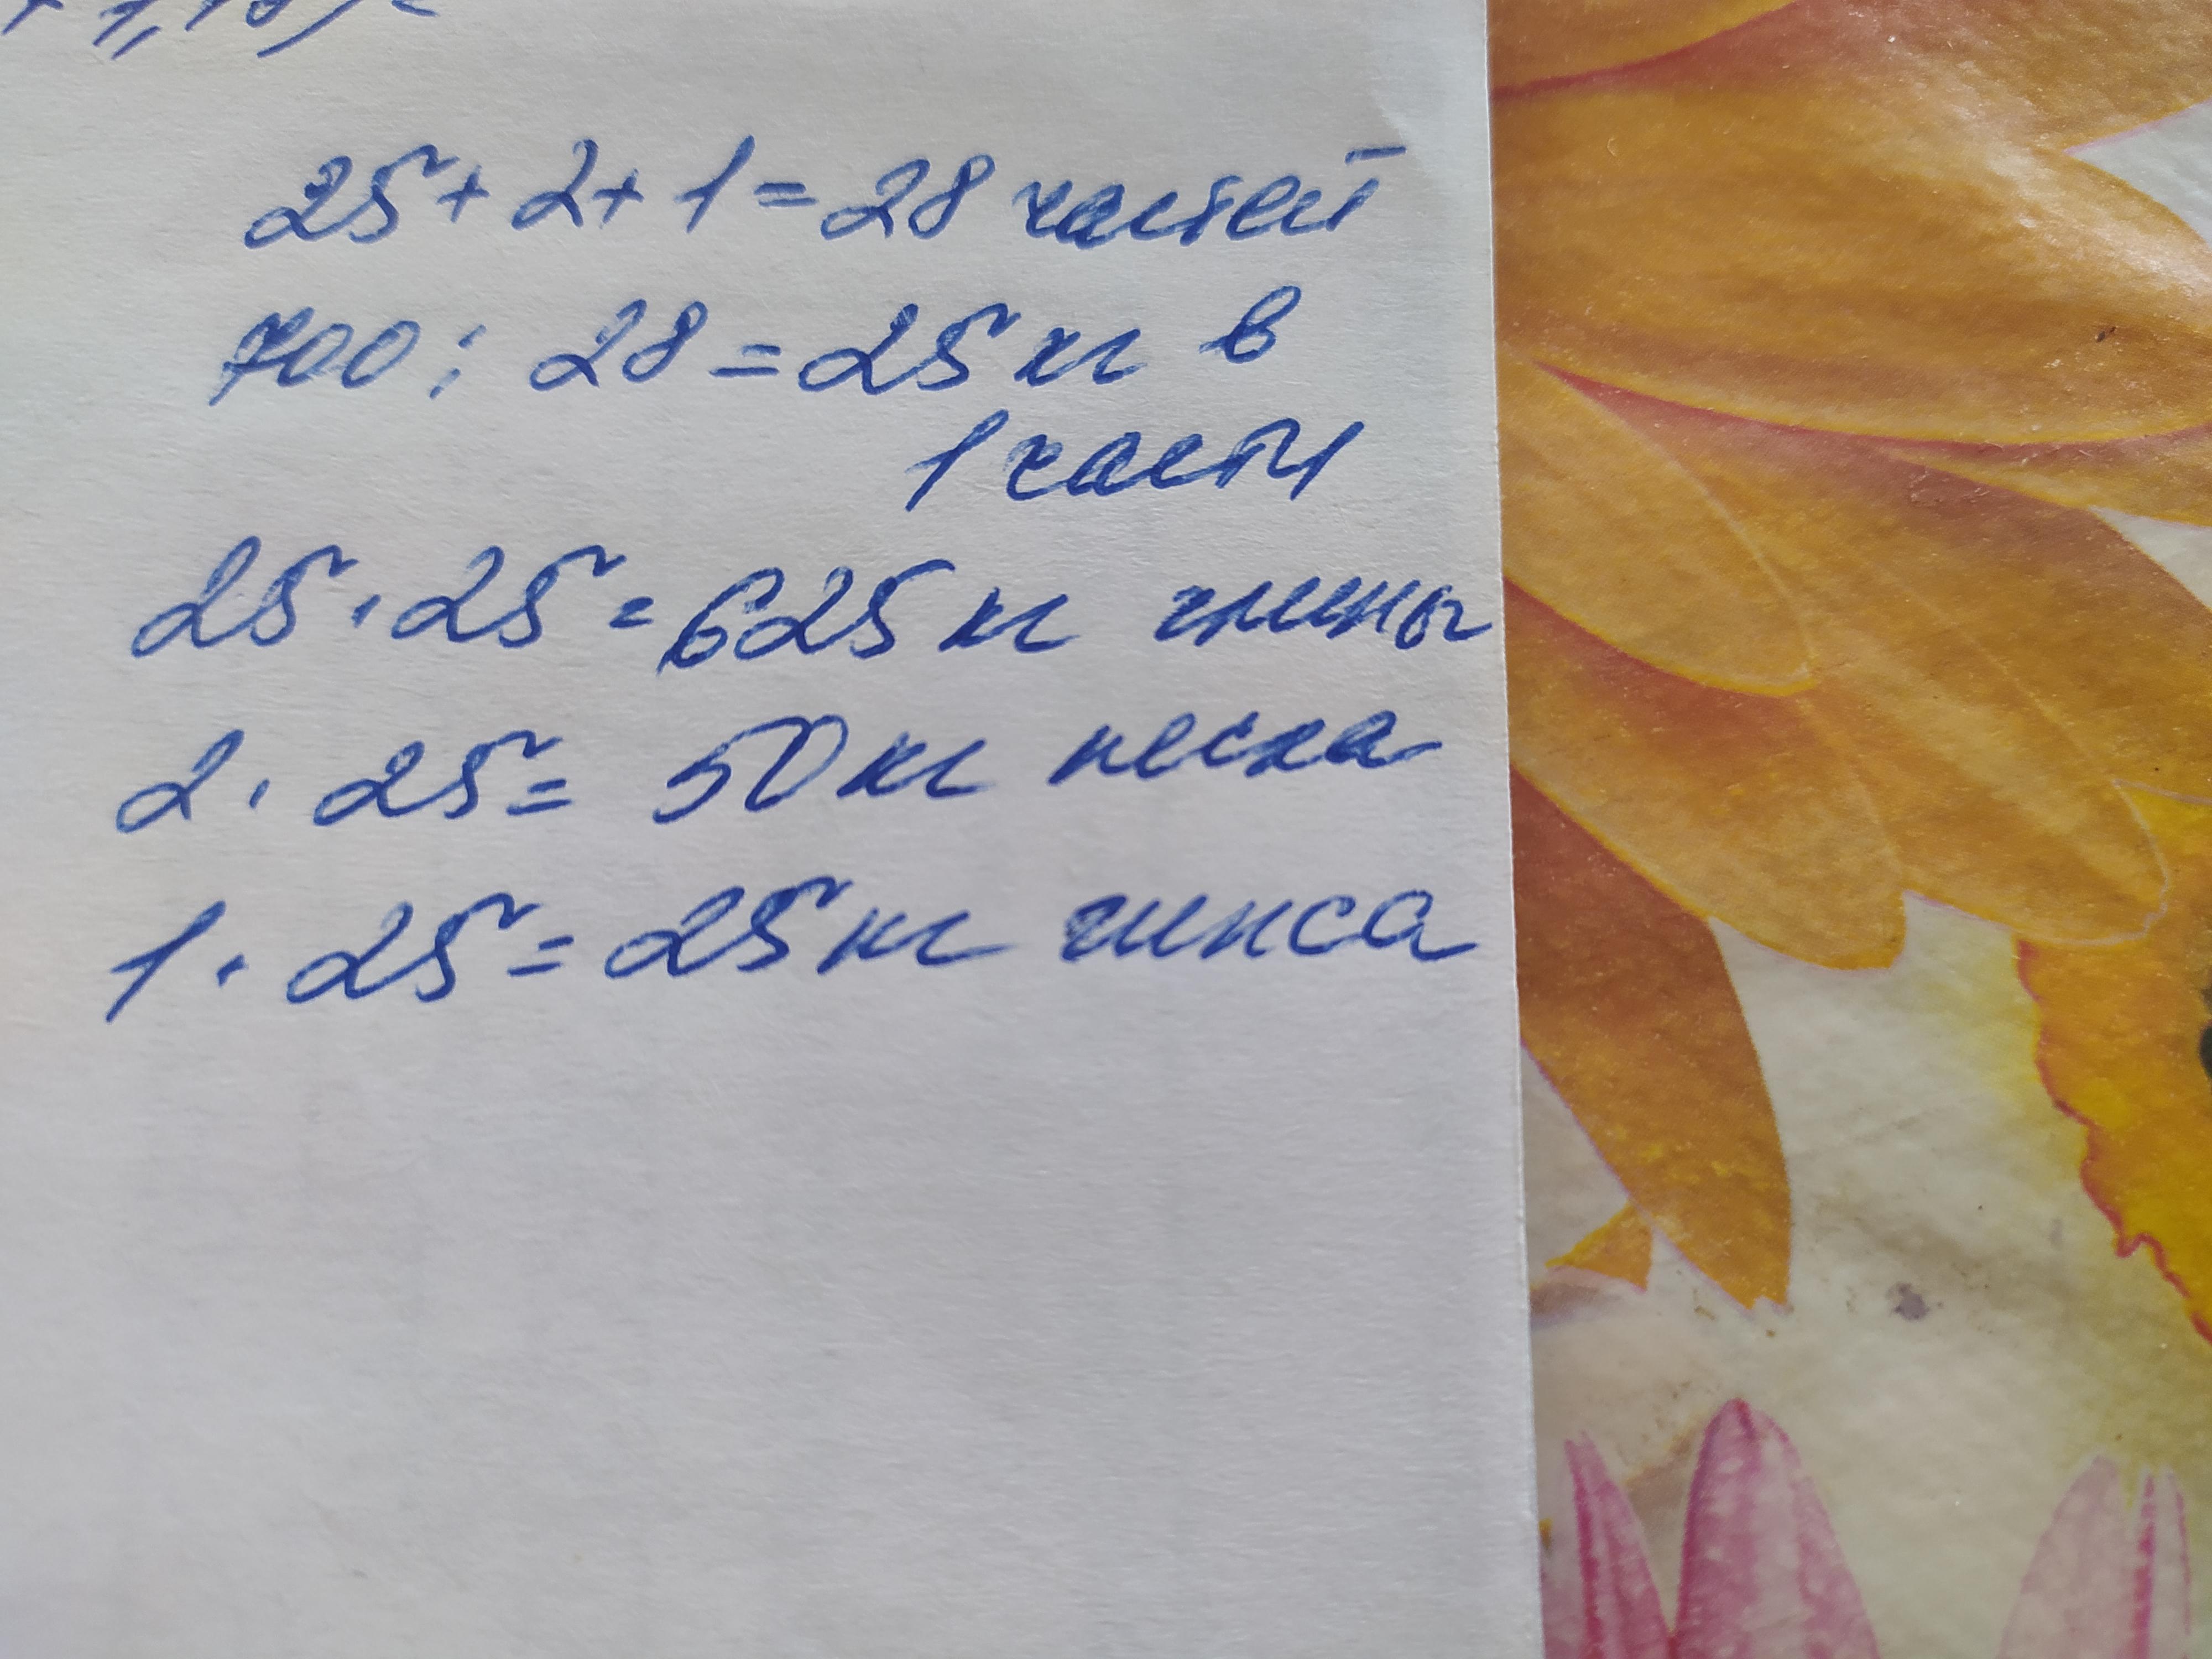 25 + 2 + 1 = 28 частей
700 : 28 = 25 кг в
1 части
25 · 25 = 625 кг глины
2 · 25 = 50 кг песка
1 · 25 = 25 кг гипса